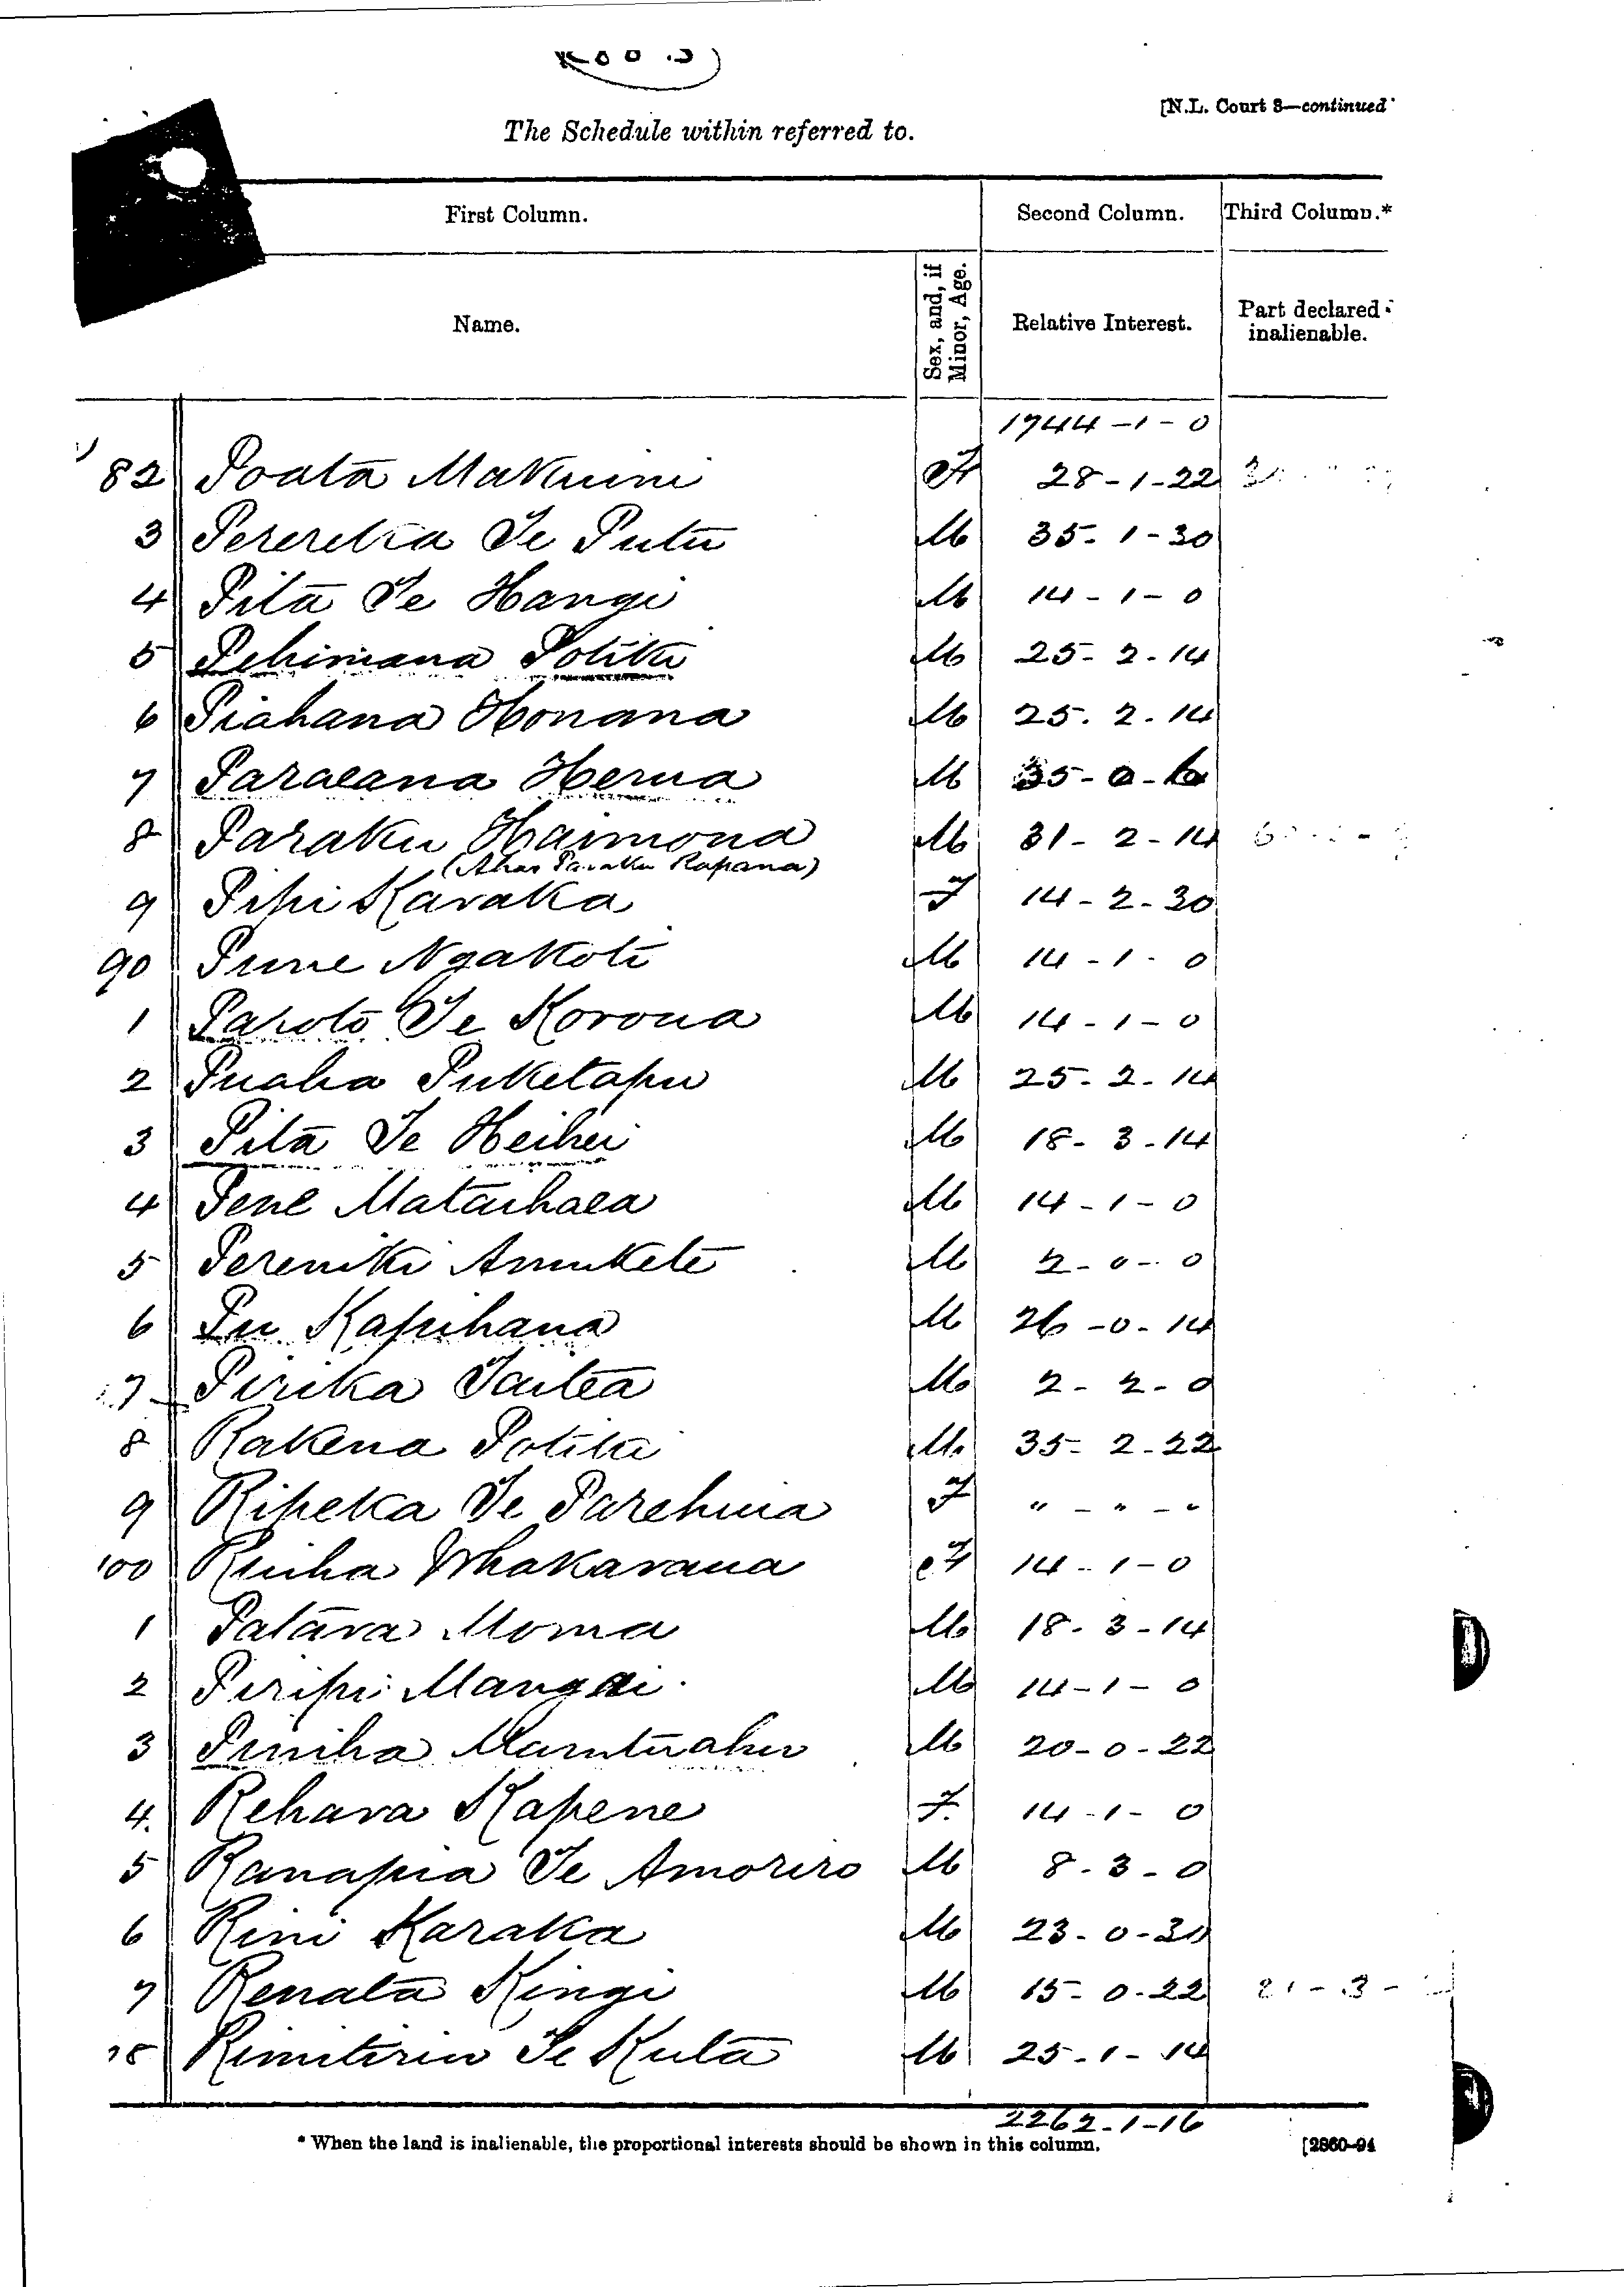 [N.L. Court 8—continued
The Schedule within referred to.
First Column. Second Column. Third Column.*
Name. Sex, and, if Minor, Age. Relative Interest. Part declared inalienable.
1944-1-0
82 Poata Makuini F 28-1-22
3 Perereka Te Putu M 35-1-30
4 Pita Te Hangi M 14-1-0
5 Pehimana Potiki M 25-2-14
6 Piahana Honana M 25-2-14
7 Paraeana Herua M 35-0-
8 Paraku Haimona M 31-2-14
(Alias Paraku Rapana)
9 Pihi Karaka F 14-2-30
90 Pune Ngakoti M 14-1-0
1 Paroto Te Korona M 14-1-0
2 Puaha Puketapu M 25-2-14
3 Pita Te Heihei M 18-3-14
4 Pene Mataihaea M 14-1-0
5 Pereniki M 2-0-0
6 Pu Kapuhana M 26-0-14
7 Pirika Taitea M 2-2-0
8 Rakena Potiki M 35-2-22
9 Ripeka Te Parehuia F " - " - "
100 Ruiha Whakarana F 14-1-0
1 Patara Moma M 18-3-14
2 Piripi Mangai M 14-1-0
3 Piniha Marutuahu M 20-0-22
4. Rehara Kapene F. 14-1-0
5 Ranapia Te Amoriro M 8-3-0
6 Rini Karaka M 23-0-30
7 Renata Kingi M 15-0-22
Rimitiriu Te Kuta M 25-1-14
2262-1-16
* When the land is inalienable, the proportional interests should be shown in this column.
[2860-94